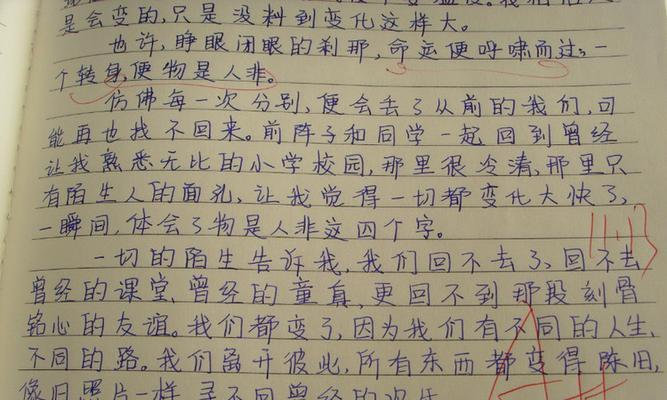 是会变的,只是没料到变化这样大。
也许,睁眼闭眼的刹那,命运便呼啸而过,一
个转身,便物是人非。
仿佛每一次分别,便会丢了从前的我们,可
能再也找不回来。前阵子和同学一起回到曾经
让我熟悉无比的小学校园,那里很冷清,那里只
有陌生人的面孔,让我觉得一切都变化大快了,
一瞬间,体会了物是人非这四个字。
一切的陌生告诉我,我们回不去了,回不去
曾经的课堂、曾经的童真,更回不到那段刻骨
铭心的友谊。我们都变了,因为我们有不同的人生,
不同的路。我们离开彼此,所有东西都变得陈旧,
像旧照片一样,寻不回曾经的欢乐